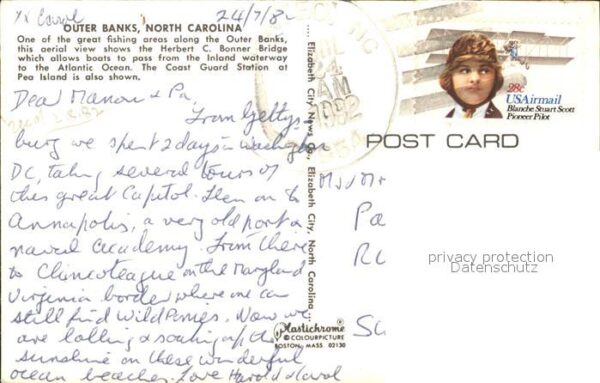 Carol 24/7/82
OUTER BANKS, NORTH CAROLINA
One of the great fishing areas along the Outer Banks,
this aerial view shows the Herbert C. Bonner Bridge
which allows boats to pass from the Inland waterway
to the Atlantic Ocean. The Coast Guard Station at
Pea Island is also shown.
Dear Manon & Pa,
From Gettys-
burg we spent 2 days in Washington
DC, taking several tours of
this great Capitol. Then on to
Annapolis, a very old port &
naval academy. From there
to Chincoteague on the Maryland
Virginia border where one can
still find Wild Ponies. Now we
are lolling & soaking up the
sunshine on these wonderful
ocean beaches. Love Harold & Carol
Elizabeth City News Co., Elizabeth City, North Carolina
Plastichrome ®
© COLOURPICTURE
BOSTON, MASS 02130
AM
1982
28c
USAirmail
Blanche Stuart Scott
Pioneer Pilot
POST CARD
Pa
privacy protection
Datenschutz